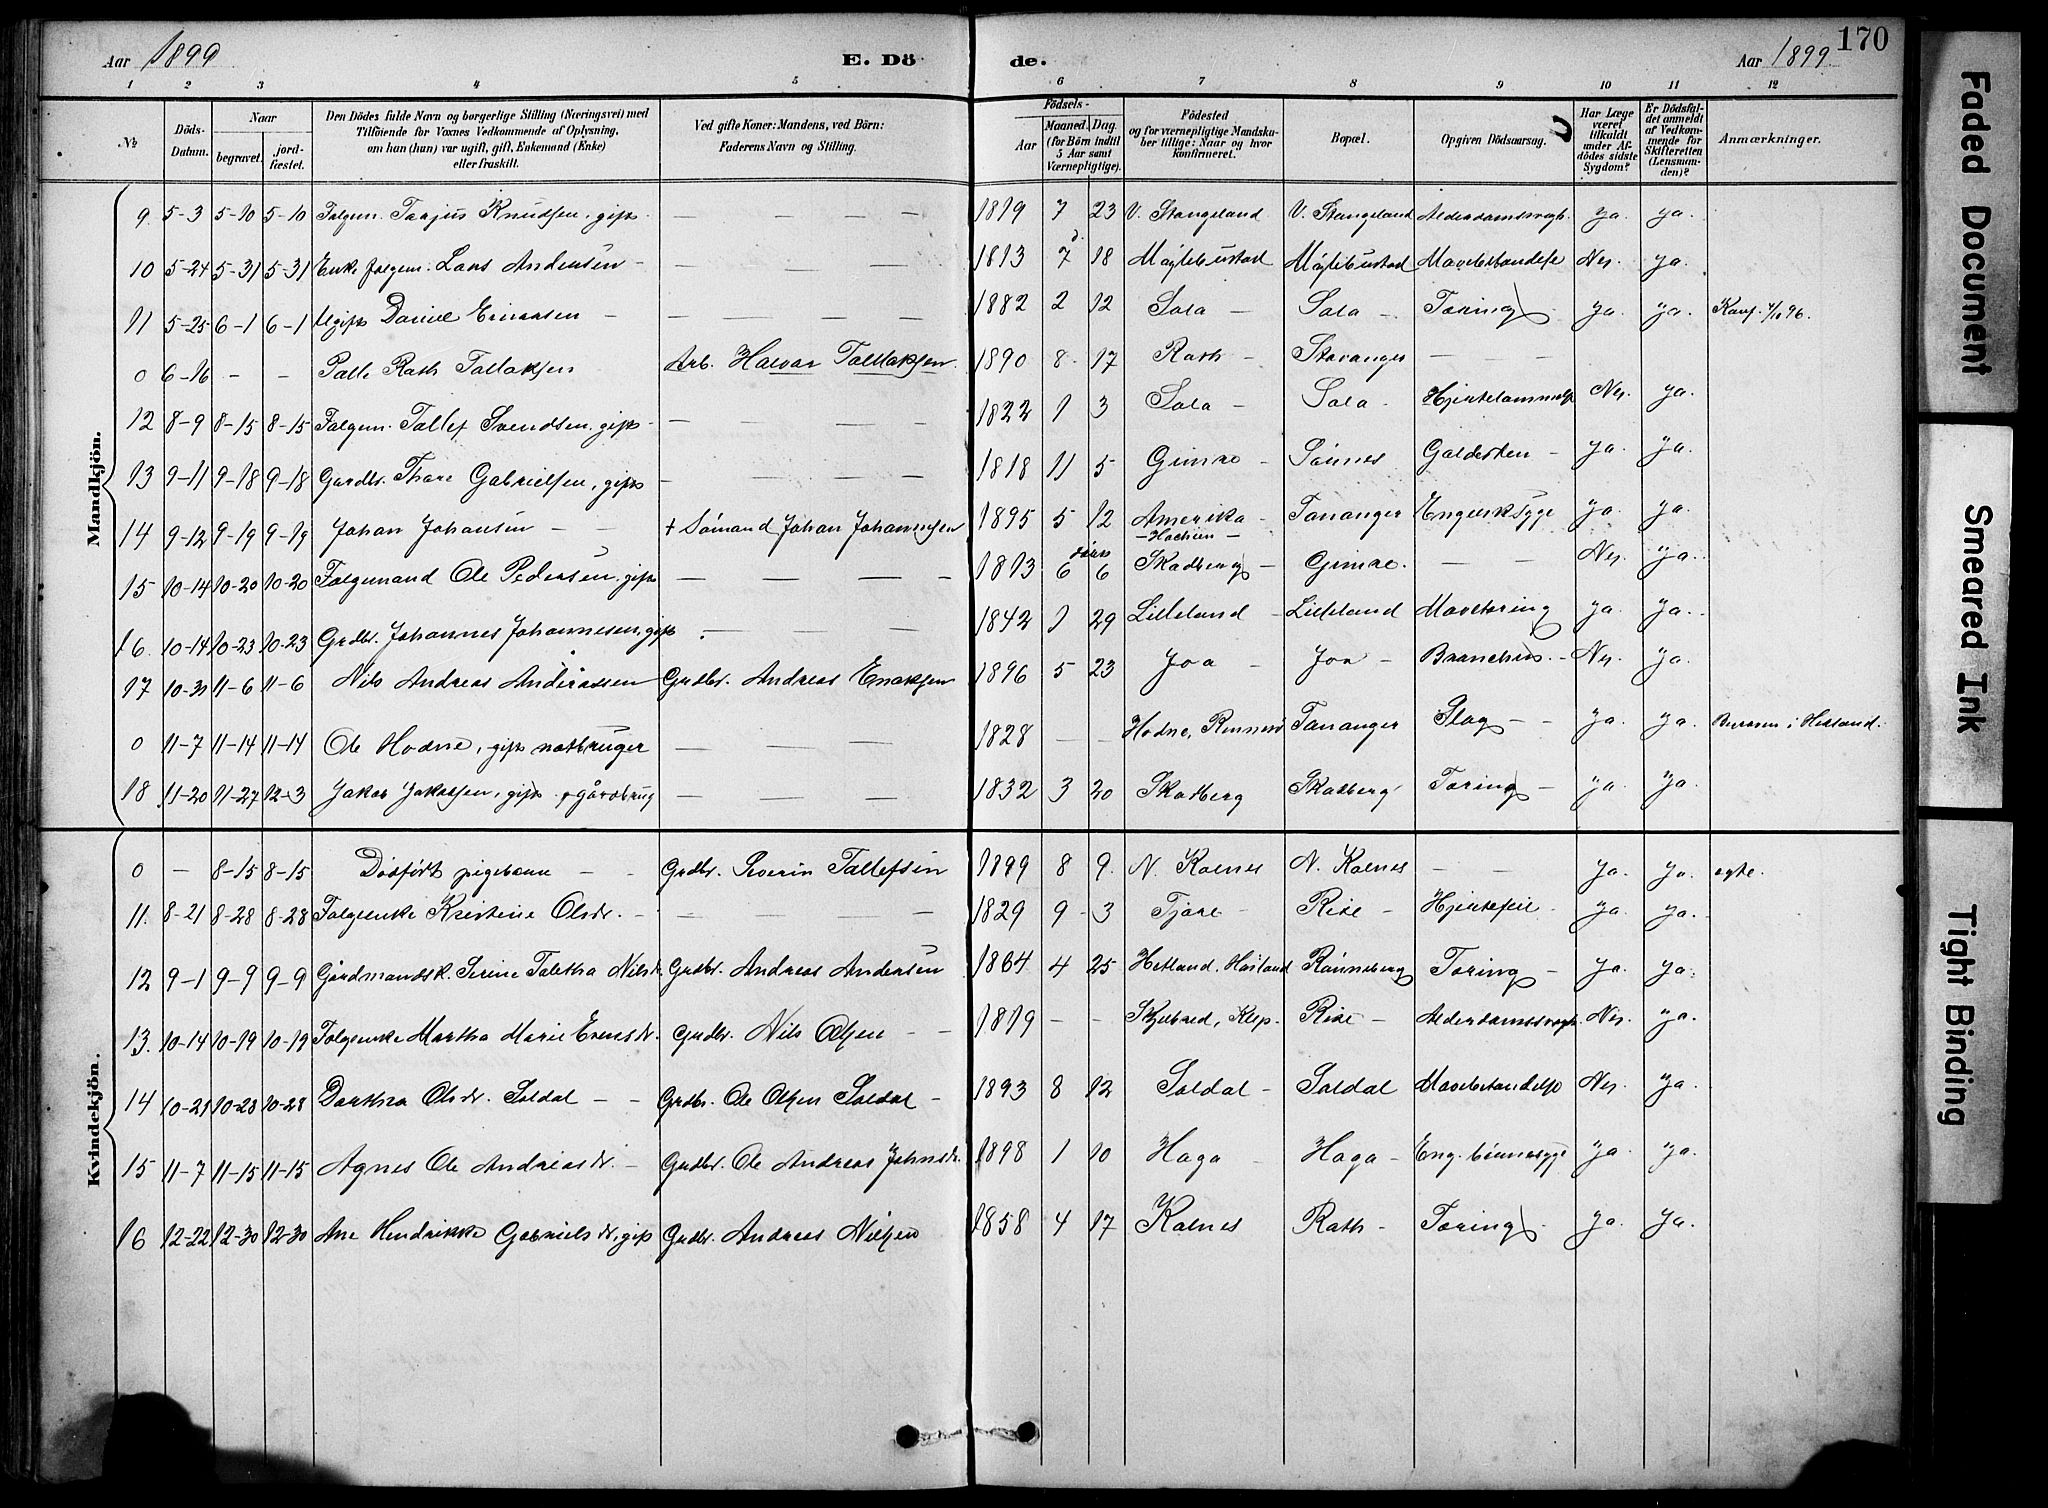 Aar 1899
E. Dö
de.
Aar 1899.
170
1 2 3 4 5 6 7 8 9 10 11 12
№
Döds-Datum.
Naar
begravet.
jord-fæstet.
Den Dödes fulde Navn og borgerlige Stilling (Næringsvei) med
Tilföiende for Voxnes Vedkommende af Oplysning,
om han (hun) var ugift, gift, Enkemand (Enke)
eller fraskilt.
Ved gifte Koner: Mandens, ved Börn:
Faderens Navn og Stilling.
Födsels-
Aar
Maaned. Dag.
(for Börn indtil
5 Aar samt
Værnepligtige).
Födested
og for værnepligtige Mandska-
ber tillige: Naar og hvor
Konfirmeret.
Bopæl.
Opgiven Dödsaarsag.
Har Læge
været
tilkaldt
under Af-
dödes sidste
Sygdom?
Er Dödsfal-
det anmeldt
af Vedkom-
mende for
Skifteretten
(Lensman-
den)?
Anmærkninger.
Mandkjön.
9. 5-3 5-10 5-10 Folgem. Tarjus Knudsen, gift. — — — 1819 7 23 V. Stangeland V. Stangeland Alderdomssvagh. ya. ya.
10 5-24 5-31 5-31 Enke folgem. Lars Andersen — — — — 1813 7 d. 18 Møglebustad Møglebustad Mavebetændelse Nei. ya.
11 5-25 6-1 6-1 Ugift Daniel — — — — 1882 2 12 Sola — Sola — Tæring ya. ya. Konf. 4/10 96.
0 6-16 — — Palle Rath Tallaksen Arb. Halvar Tallaksen. 1890 8 17 Rath — Stavanger — —
12 8-9 8-15 8-15 Folgem. Tallef Svendsen, gift — — — 1822 1 3 Sola — Sola — Nei. ya.
13 9-11 9-18 9-18 Gardbr. Thore Gabrielsen, gift — — — 1818 11 5 Gimre — Sønnes Galdesten — ya. ya.
14 9-12 9-19 9-19 Johan Johansen — — + Sømand Johan Johannesen 1895 5 12 Amerika — Tananger Engelsk syge ya. ya.
15 10-14 10-20 10-20 Folgemand Ole Pedersen, gift — — — — 1813 6 6 Skadberg — Gimre. — — Nei. ya.
16. 10-14 10-23 10-23 Grdbr. Johannes Johannesen, gift — — — 1842 1 29 Lilleland — Lilleland Mavetæring ya. ya.
17 10-31 11-6 11-6 Nils Andreas Andreassen Grdbr. Andreas Enoksen 1896 5 23 Joa — Joa — Nei. ya.
0 11-7 11-14 11-14 Ole Hodne, gift notbruger — — — 1828 — — Hodne, Rennesø Tananger Slag — — ya. ya. i Hetland.
18 11-20 11-27 12-3 Jakob Jakobsen, gift gårdbrug — — — 1832 3 20 Skatberg Skatberg Tæring — ya. ya.
Kvindekjön.
0 — 8-15 8-15 Dødfødt pigebarn — — Grdbr. Severin Tallefsen 1899 8 9. N. Kolnes N. Kolnes — — ya. ya. egte.
11. 8-21 8-28 8-28 Folgeenke Kristine Olsdr. — — — 1829 9 3 Tjøre — Rise — Hjertefeil — ya. ya.
12 9-1 9-9 9-9 Gårdmandsk. Serine Tabitha Nilsdr. Grdbr. Andreas Andersen 1864 4 25 Hetland, Høiland Rønneberg Tæring — ya. ya.
13. 10-14 10-19 10-19 Folgeenke Martha Marie Evensdr. Grdbr. Nils Olsen — 1819 — — Klep. Rise — Alderdomssvagh. Nei. ya.
14 10-21 10-28 10-28 Dorthea Olsdr. Soldal — — Grdbr. Ole Olsen Soldal — 1893 8 12 Soldal — Soldal Mavebetændelse Nei. ya.
15 11-7 11-15 11-15 Agnes Ole Andreasdr. — Grdbr. Ole Andreas 1898 1 10 Haga — Haga — ya. ya.
16 12-22 12-30 12-30 Ane Hendrikke Gabrielsdr, gift Grdbr. Andreas Nilsen 1858 4 17 Kolnes Rath — Tæring — ya. ya.
Faded Document
Smeared Ink
Tight Binding